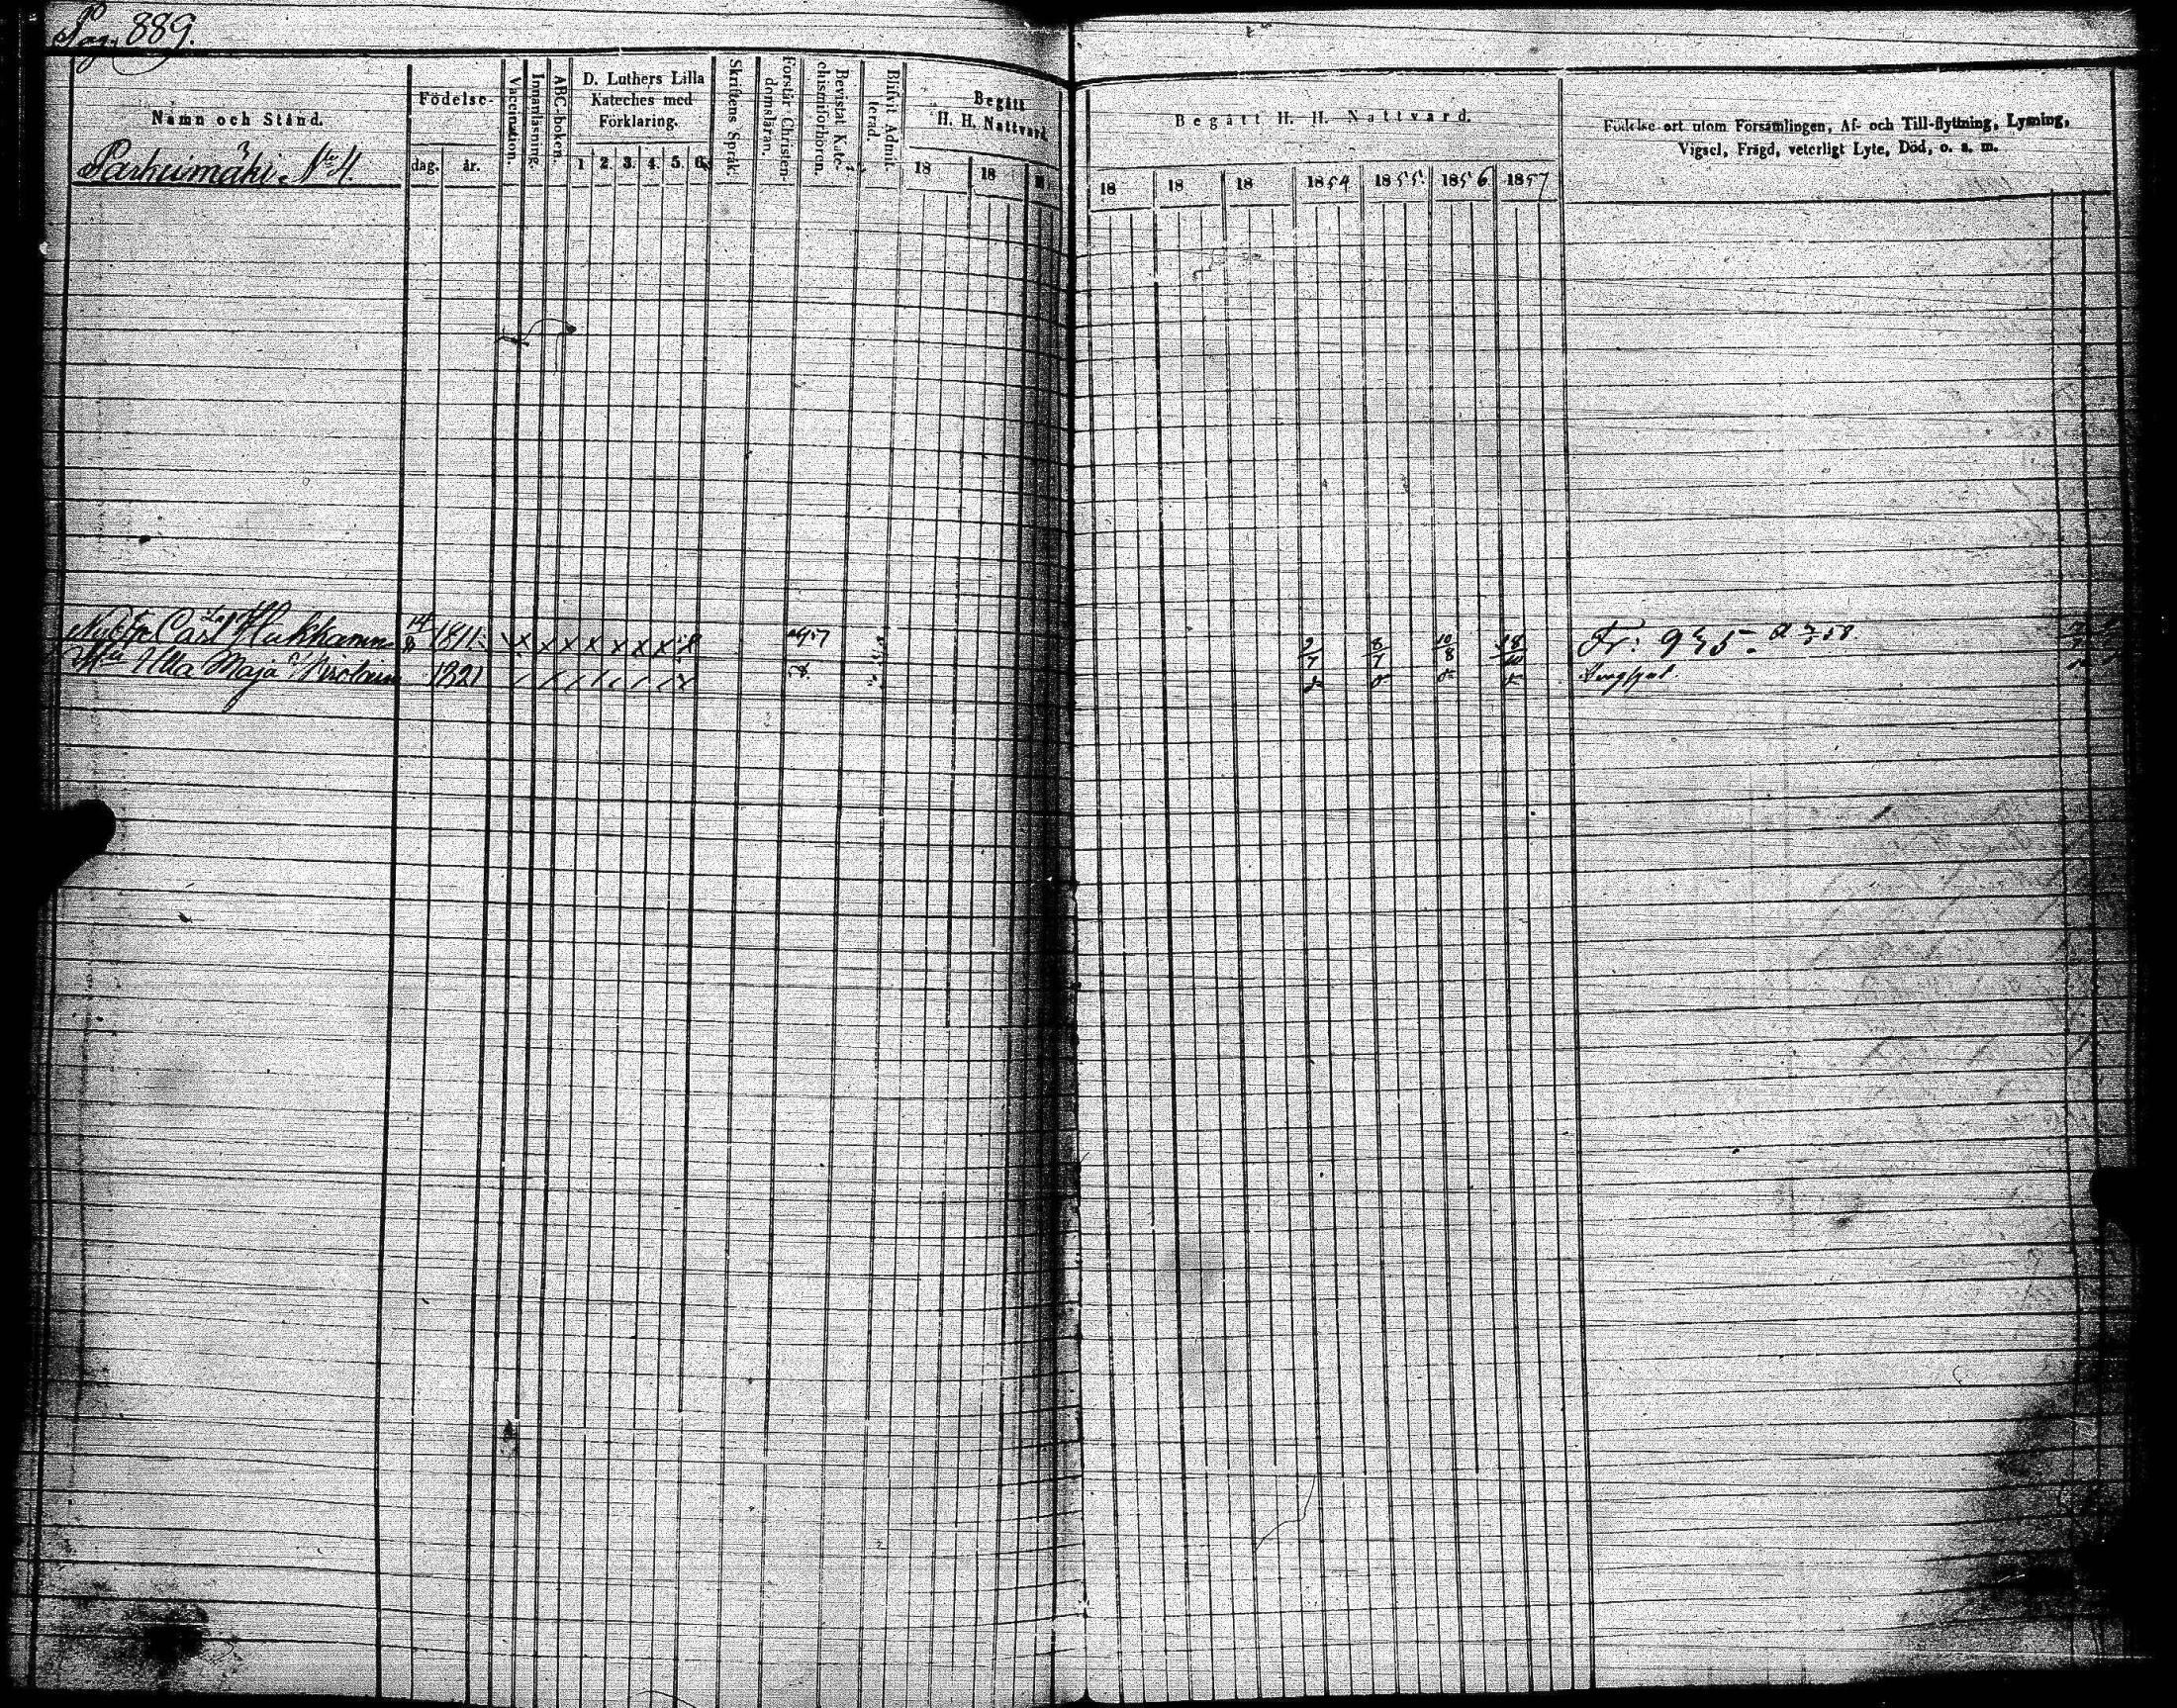 Pag. 889.
Namn och Stånd.
Parkuimäki N:o 4.
Födelse-
dag. år.
Vaccination.
Innanläsning.
ABC-boken.
D. Luthers Lilla
Kateches med
Förklaring.
1 2. 3. 4. 5. 6.
Skriftens Språk.
Förstår Christen-
domsläran.
Bevistat Kate-
chismiförhören.
Blifvit Admit-
terad.
Begått
H. H. Nattvard.
18 18 18
Begått H. H. Nattvard.
18 18 18 1854 1855. 1856 1857
Födelse-ort utom Församlingen, Af- och Till-flyttning, Lysning,
Vigsel, Frägd, veterligt Lyte, Död, o. s. m.
Carl Hukkanen 14/8 1811. x x x x x x x x 9/7 8/7 10/8 18/10 Fr: 935.
Ulla Maja 1821